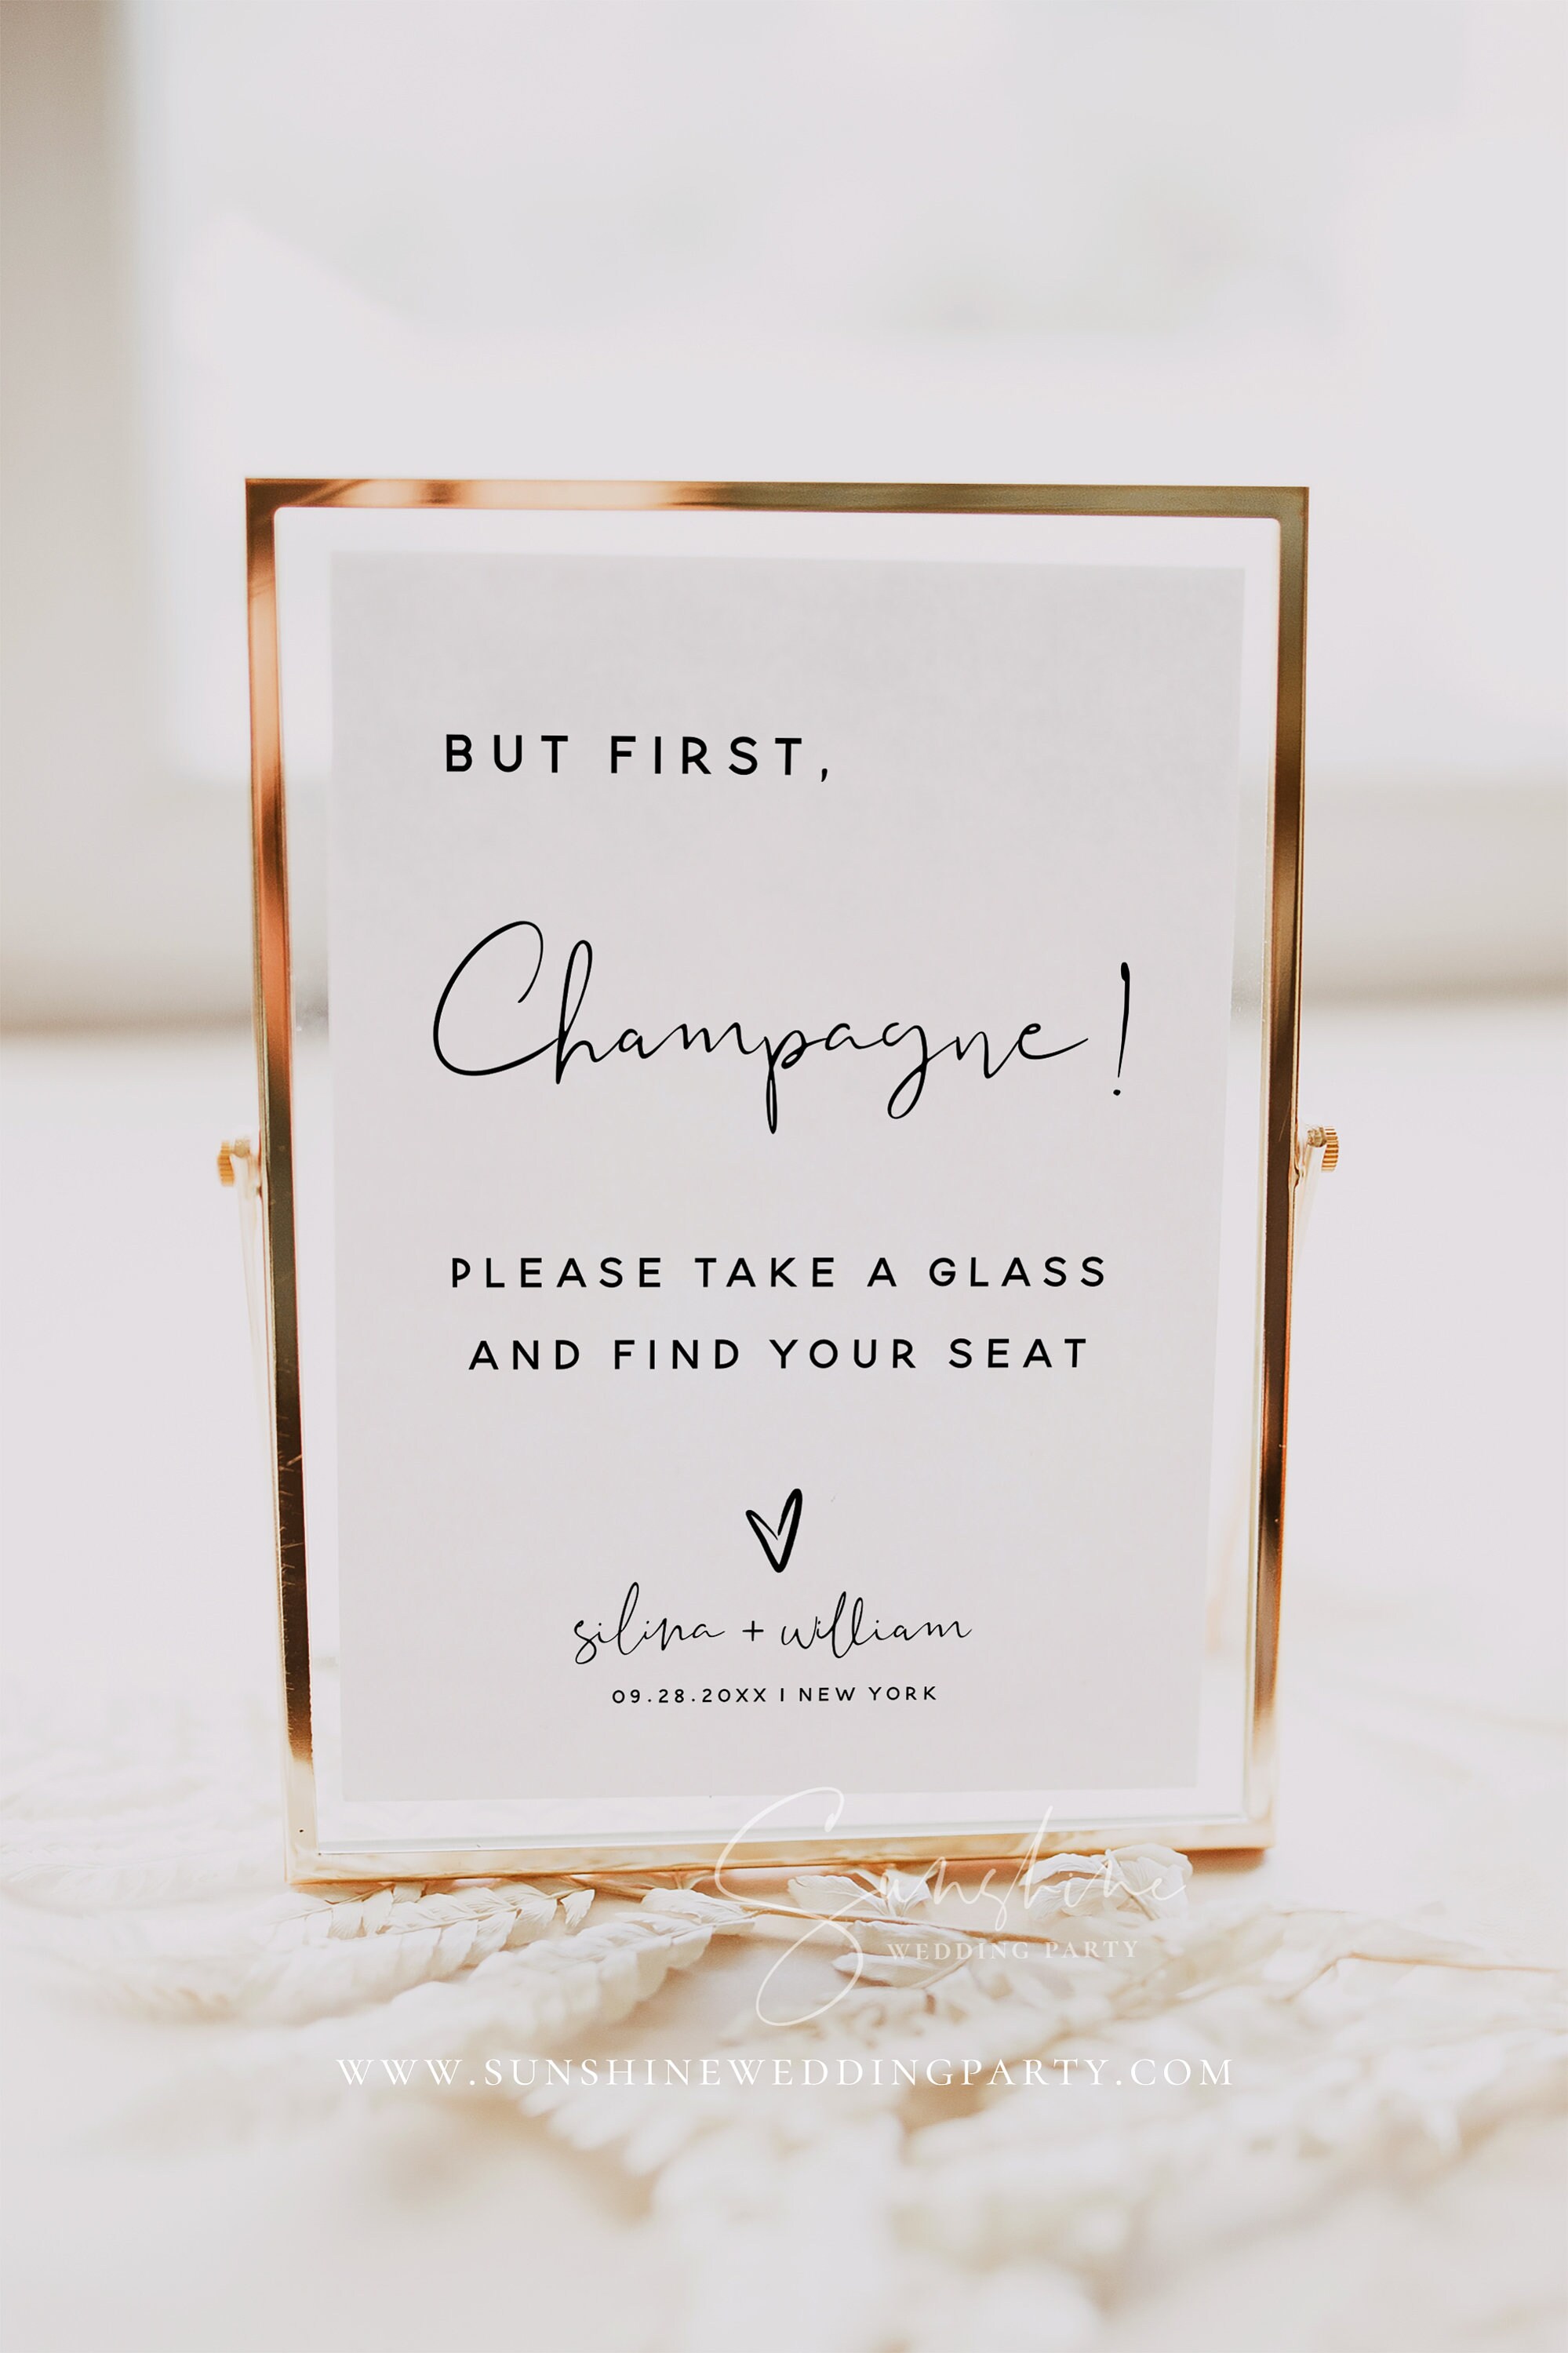 BUT FIRST,
Champagne!
PLEASE TAKE A GLASS
AND FIND YOUR SEAT
silina + william
09.28.20XX | NEW YORK
Sunshine
WEDDING PARTY
WWW.SUNSHINEWEDDINGPARTY.COM